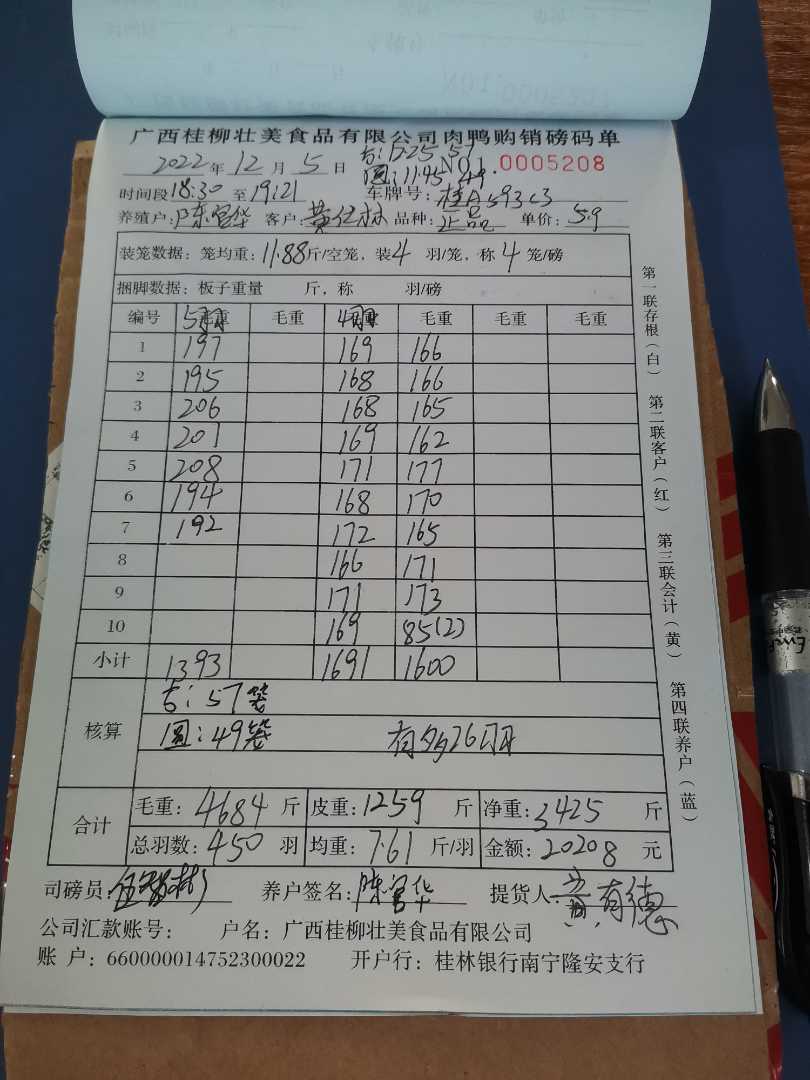 广西桂柳壮美食品有限公司肉鸭购销磅码单
2022年12月5日 古:12.25 57
圆:11.45 49. NO1. 0005208
时间段18:30至19:21 车牌号:桂A593C3
养殖户:陈富华 客户:黄仁林 品种:正品 单价:5.9
装笼数据:笼均重:11.88斤/空笼,装4羽/笼,称4笼/磅
捆脚数据:板子重量 斤,称 羽/磅
编号 5 毛重 4 毛重 毛重 毛重 毛重
1 197 169 166
2 195 168 166
3 206 168 165
4 201 169 162
5 208 171 177
6 194 168 170
7 192 172 165
8 166 171
9 171 173
10 169 85(2)
小计 1393 1691 1600
核算 古:57笼
圆:49笼 有多26
合计 毛重:4684斤 皮重:1259斤 净重:3425斤
总羽数:450羽 均重:7.61斤/羽 金额:20208元
司磅员: 养户签名:陈富华 提货人:黄有德
公司汇款账号: 户名:广西桂柳壮美食品有限公司
账 户:660000014752300022 开户行:桂林银行南宁隆安支行
第一联存根(白) 第二联客户(红) 第三联会计(黄) 第四联养户(蓝)